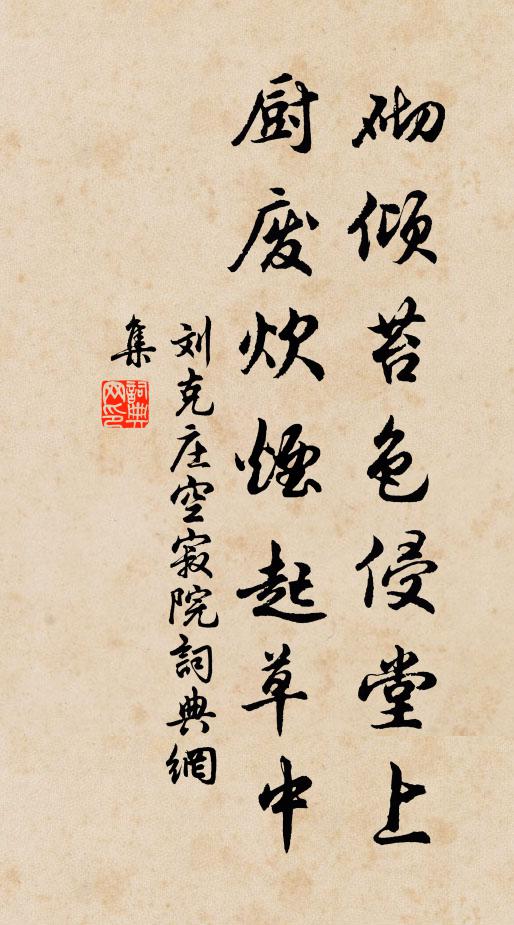 砌倾苔色侵堂上
厨废炊烟起草中
刘克庄空寂院詞典網
集
詞典
网印